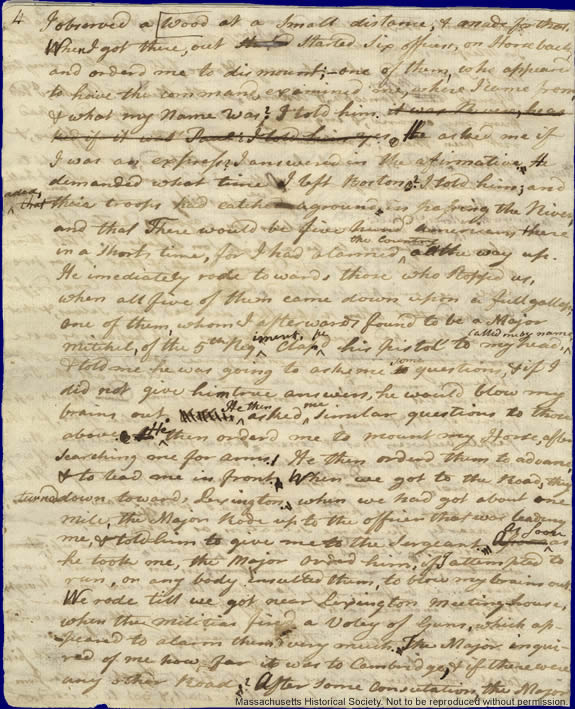 4 I observed a Wood at a Small distance, & made for that.
When I got there, out Started Six officers, on Horse back,
and orderd me to dismount;- one of them, who appeared
to have the command, examined me, where I came from,
& what my Name Was? I told him. it was Revere, he as
ked if it was Paul? I told him yes. He asked me if
I was an express? I answered in the afirmative. He
demanded what time I left Boston? I told him; and
aded, that their troops had catched aground in passing the River,
and that There would be five hundred americans there
in a short time, for I had alarmed the Country all the way up.
He imediately rode towards those who stoppd us,
when all five of them came down upon a full gallop;
one of them, whom I afterwards found to be a Major
Mitchel, of the 5th Regiment, he Clap'd his pistol to my head, called me by name,
& told me he was going to ask me some questions, & if I
did not give him true answers, he would blow my
brains out. He then asked me similar questions to those
above. He then orderd me to mount my Horse, after
searching me for arms. He then orderd them to advance,
& to lead me in front. When we got to the Road, they
turned down towards Lexington. when we had got about one
mile, the Major Rode up to the officer that was leading
me, & told him to give me to the Sergeant. As soon as
he took me, the Major orderd him, if I attempted to
run, or any body insulted them, to blow my brains out.
We rode till we got near Lexington Meeting-house,
when the militia fired a Voley of Guns, which ap-
peared to alarm them very much. The Major inqui-
red of me how far it was to Cambridge, & if there were
any other Road? After some consultation, the Major
Massachusetts Historical Society. Not to be reproduced without permission.